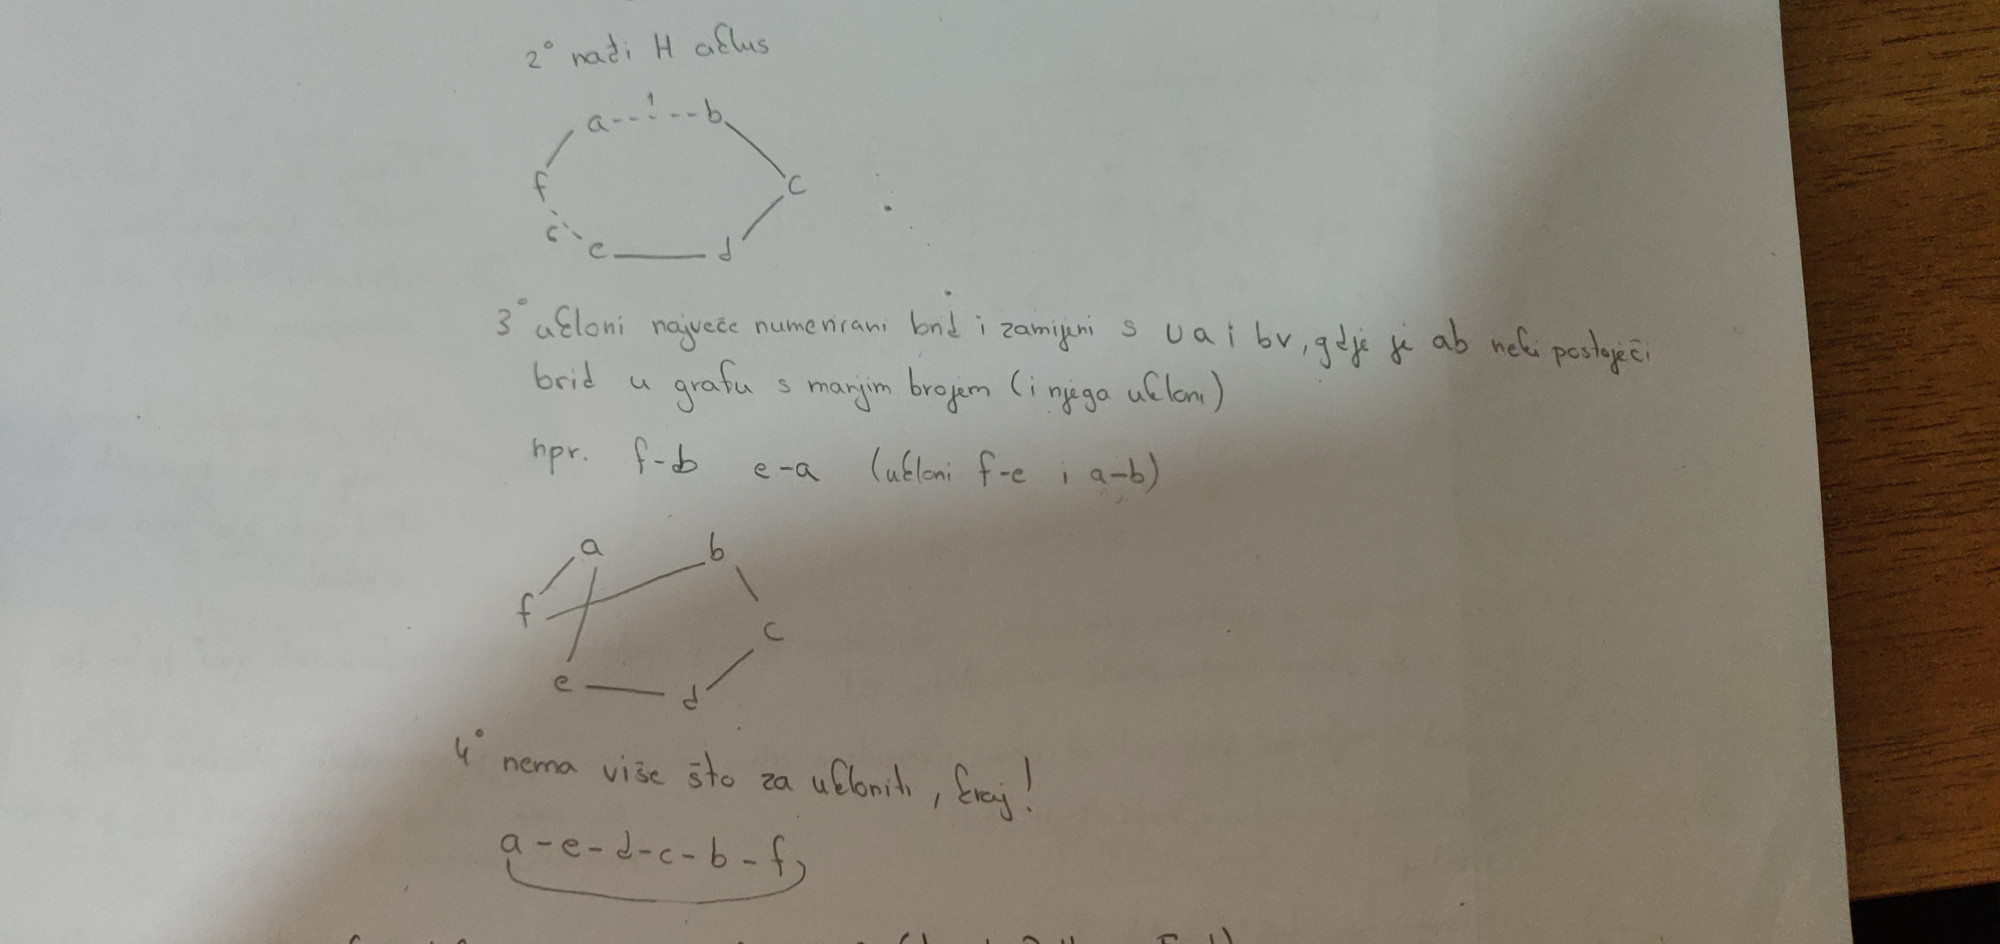 2° nađi H ciklus
1
a b
f c
6 e d
3° ukloni najveće numerirani brid i zamijeni s ua i bv, gdje je ab neki postojeći
brid u grafu s manjim brojem (i njega ukloni)
npr. f-b e-a (ukloni f-e i a-b)
a b
f c
e d
4° nema više što za ukloniti, kraj!
a-e-d-c-b-f